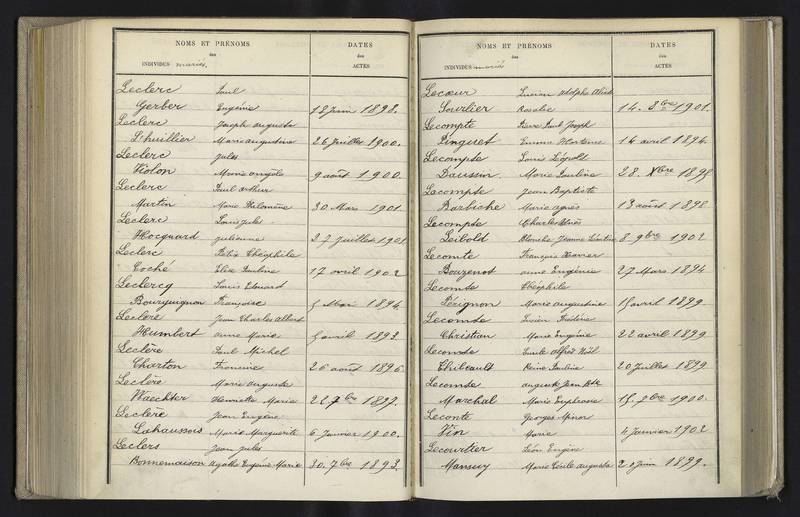 NOMS ET PRÉNOMS
des
INDIVIDUS mariés.
DATES
des
ACTES
Leclerc Paul
Gerber Eugénie 18 Juin 1898.
Leclerc Joseph Auguste
L'huillier Marie Augustine 26 Juillet 1900.
Leclerc Jules
Violon Marie 9 août 1900.
Leclerc Paul Arthur
Martin Marie Philomène 30 Mars 1901
Leclerc Louis Jules
Hocquard Julienne 27 Juillet 1901
Leclerc Félix Théophile
Coché Elise Pauline 12 avril 1902
Leclercq Louis Edouard
Bourguignon Françoise 5 Mai 1894.
Leclère Jean Charles Albert
Humbert Anne Marie 5 avril 1893.
Leclère Paul Michel
Charton 26 août 1896.
Leclère Marie Auguste
Waechter Henriette Marie 7bre 1897.
Leclère Jean Eugène
Lahaussois Marie Marguerite 6 Janvier 1900.
Leclers Jean Jules
Bonnemaison Agathe Eugénie Marie 30. 7bre 1893.
NOMS ET PRÉNOMS
des
INDIVIDUS mariés
DATES
des
ACTES
Lecœur Lucien Adolphe
Sourlier Rosalie 14. 8bre 1901.
Lecompte Pierre Paul Joseph
Pinguet Emma Hortense 16 avril 1894.
Lecompte Louis Léopold
Daussin Marie Pauline 28. Xbre 1895
Lecompte Jean Baptiste
Barbiche Marie Agnès 13 août 1898
Lecompte Charles
Leibold Blanche Jeanne 8 9bre 1902
Lecomte François Xavier
Bouzenot Anne Eugénie 27 Mars 1894
Lecomte Théophile
Pérignon Marie Augustine 15 avril 1899.
Lecomte Lucien Frédéric
Christian Marie Eugénie 22 avril 1899
Lecomte Emile Alfred Noël
Thibault Reine Pauline 20 Juillet 1899
Lecomte Auguste Jean Bte
Marchal Marie Euphrasie 15. 7bre 1900.
Leconte Georges
Vin Marie 4 Janvier 1902
Lecourtier Léon Eugène
Mansuy Marie Cécile Augusta Juin 1899.